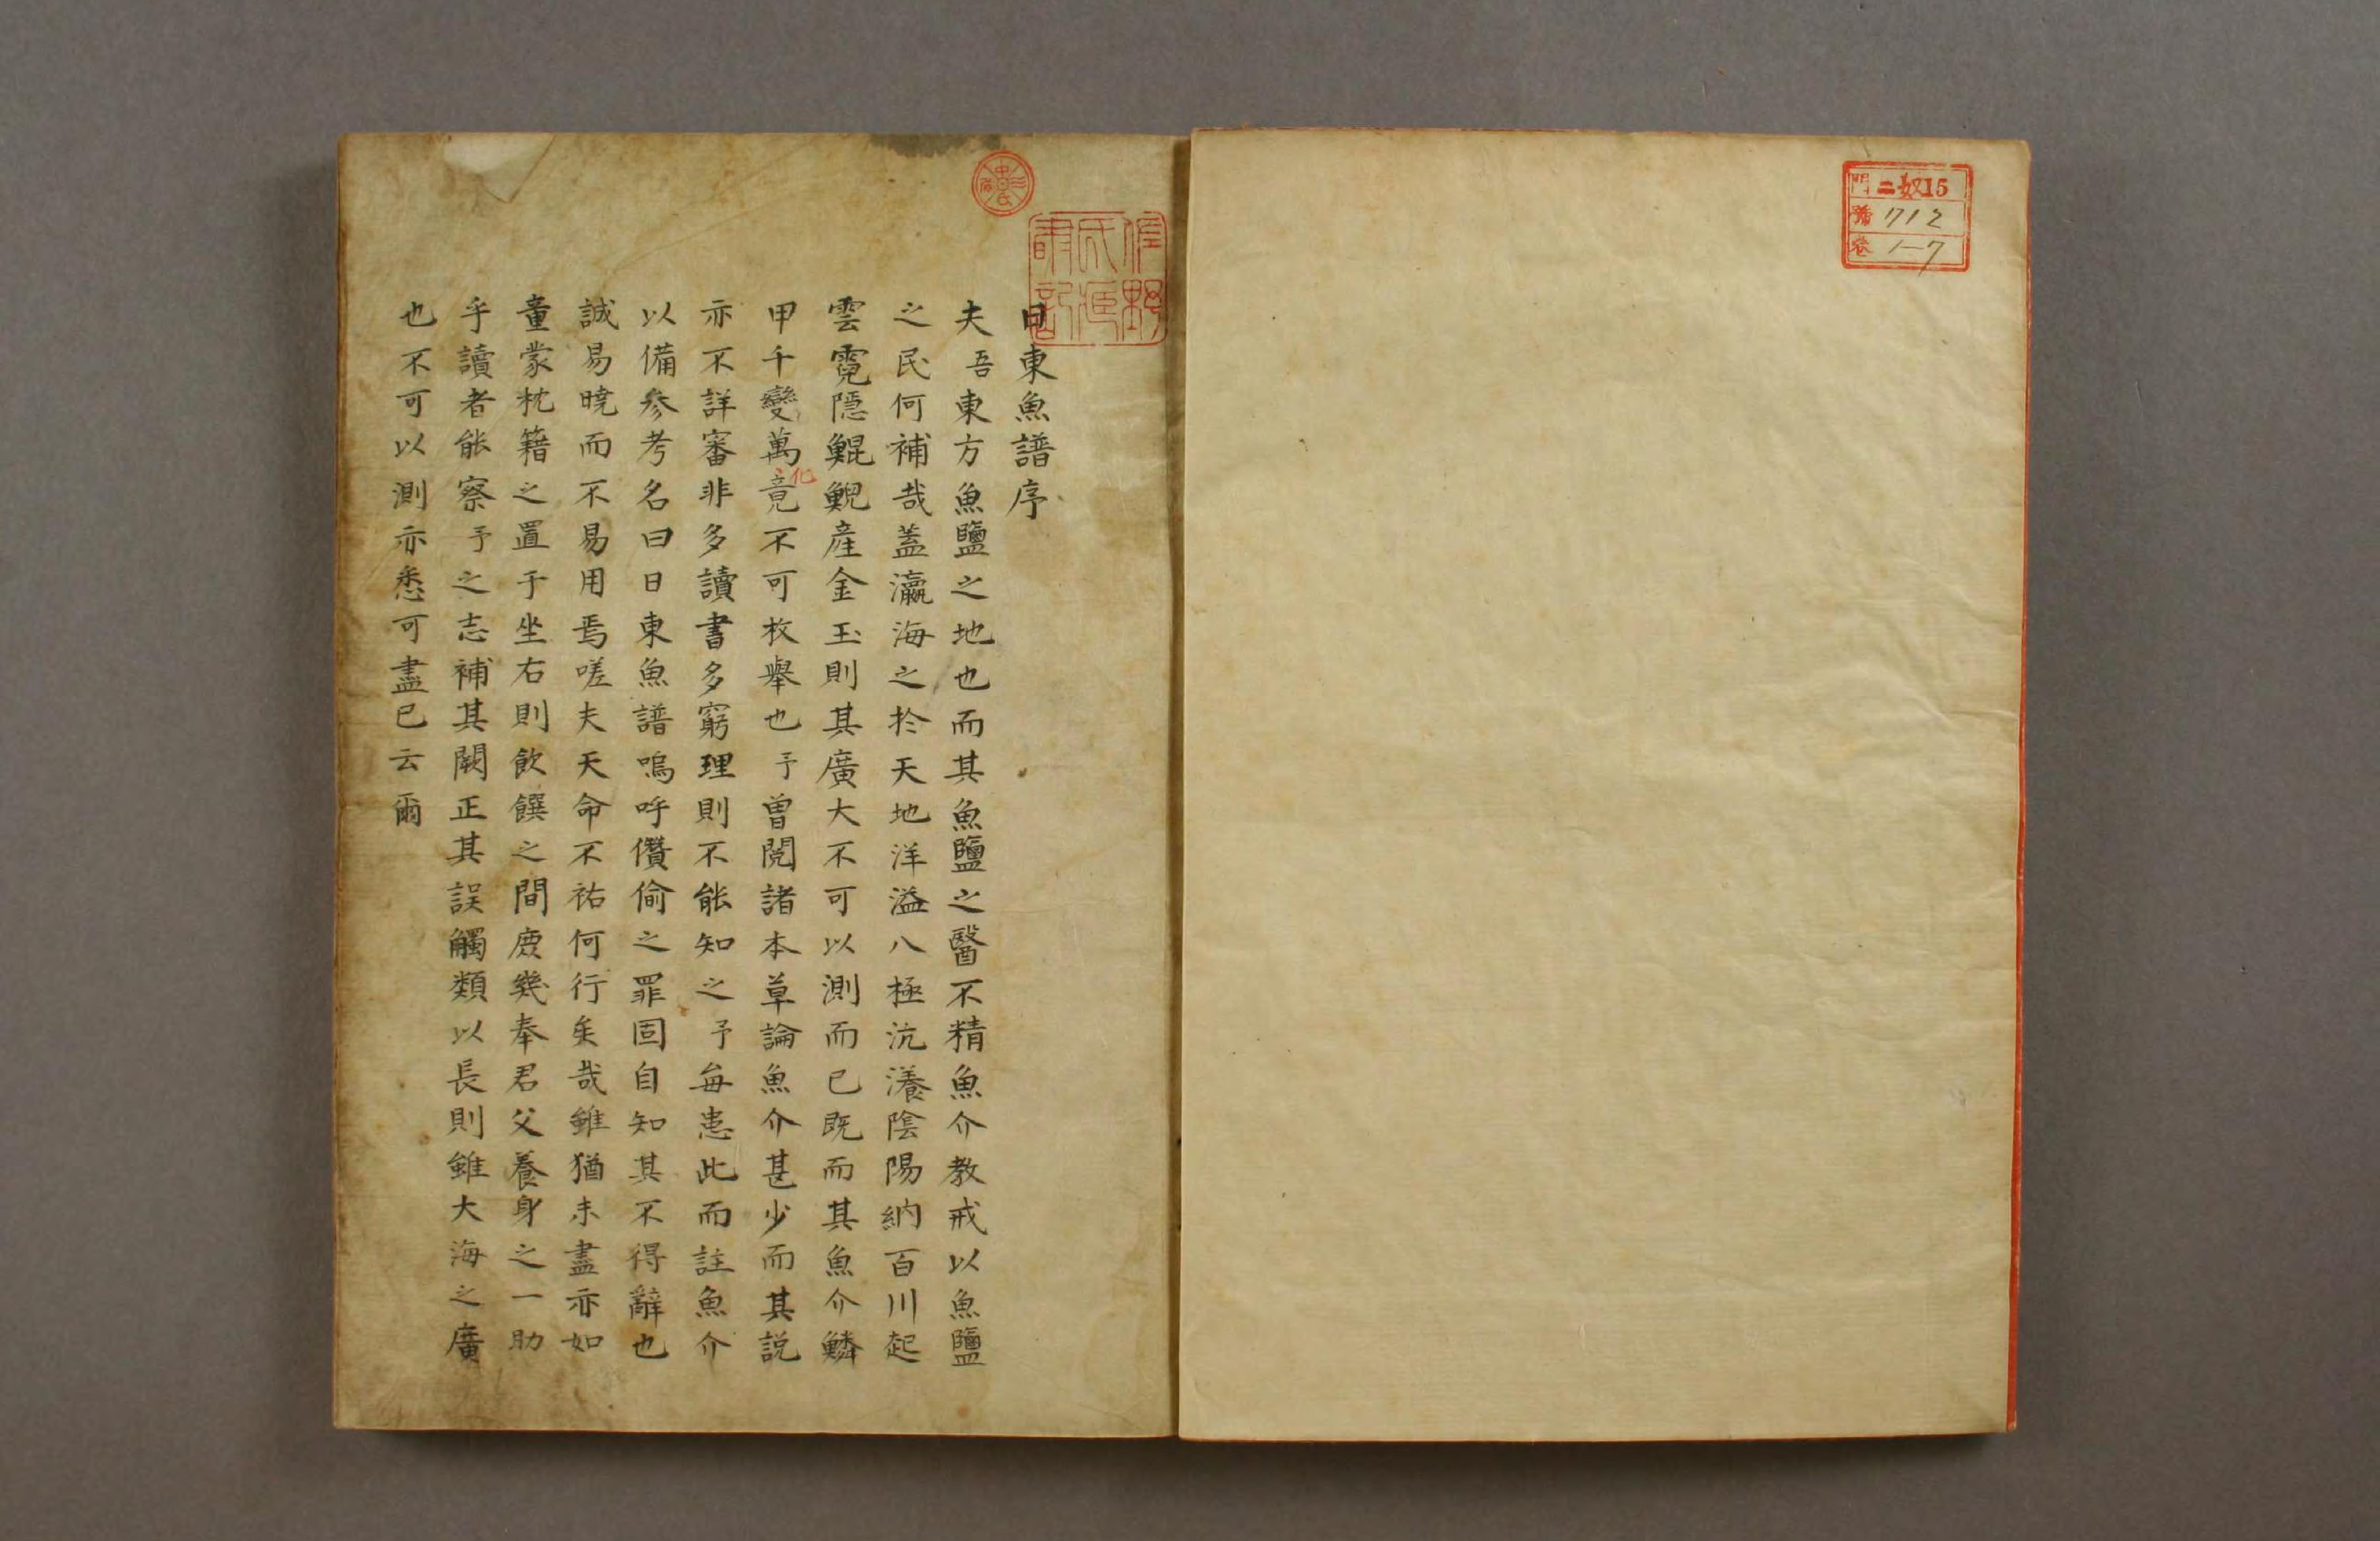 門 二奴15
號 712
卷 1-7
日東魚譜序
夫吾東方魚鹽之地也而其魚鹽之醫不精魚介教戒以魚鹽
之民何補哉蓋瀛海之於天地洋溢八極沆瀁陰陽納百川起
雲霓隠鯤鯢産金玉則其廣大不可以測而已既而其魚介鱗
甲千變萬化竟不可枚舉也予曽閲諸本草論魚介甚少而其説
亦不詳審非多讀書多窮理則不能知之予毎患此而註魚介
以備參考名曰日東魚譜嗚呼儹偷之罪固自知其不得辭也
誠易曉而不易用焉嗟夫天命不祐何行矣哉雖猶未盡亦如
童蒙枕籍之置于坐右則飲饌之間庶幾奉君父養身之一助
乎讀者能察予之志補其闕正其誤觸類以長則雖大海之廣
也不可以測亦悉可盡已云爾